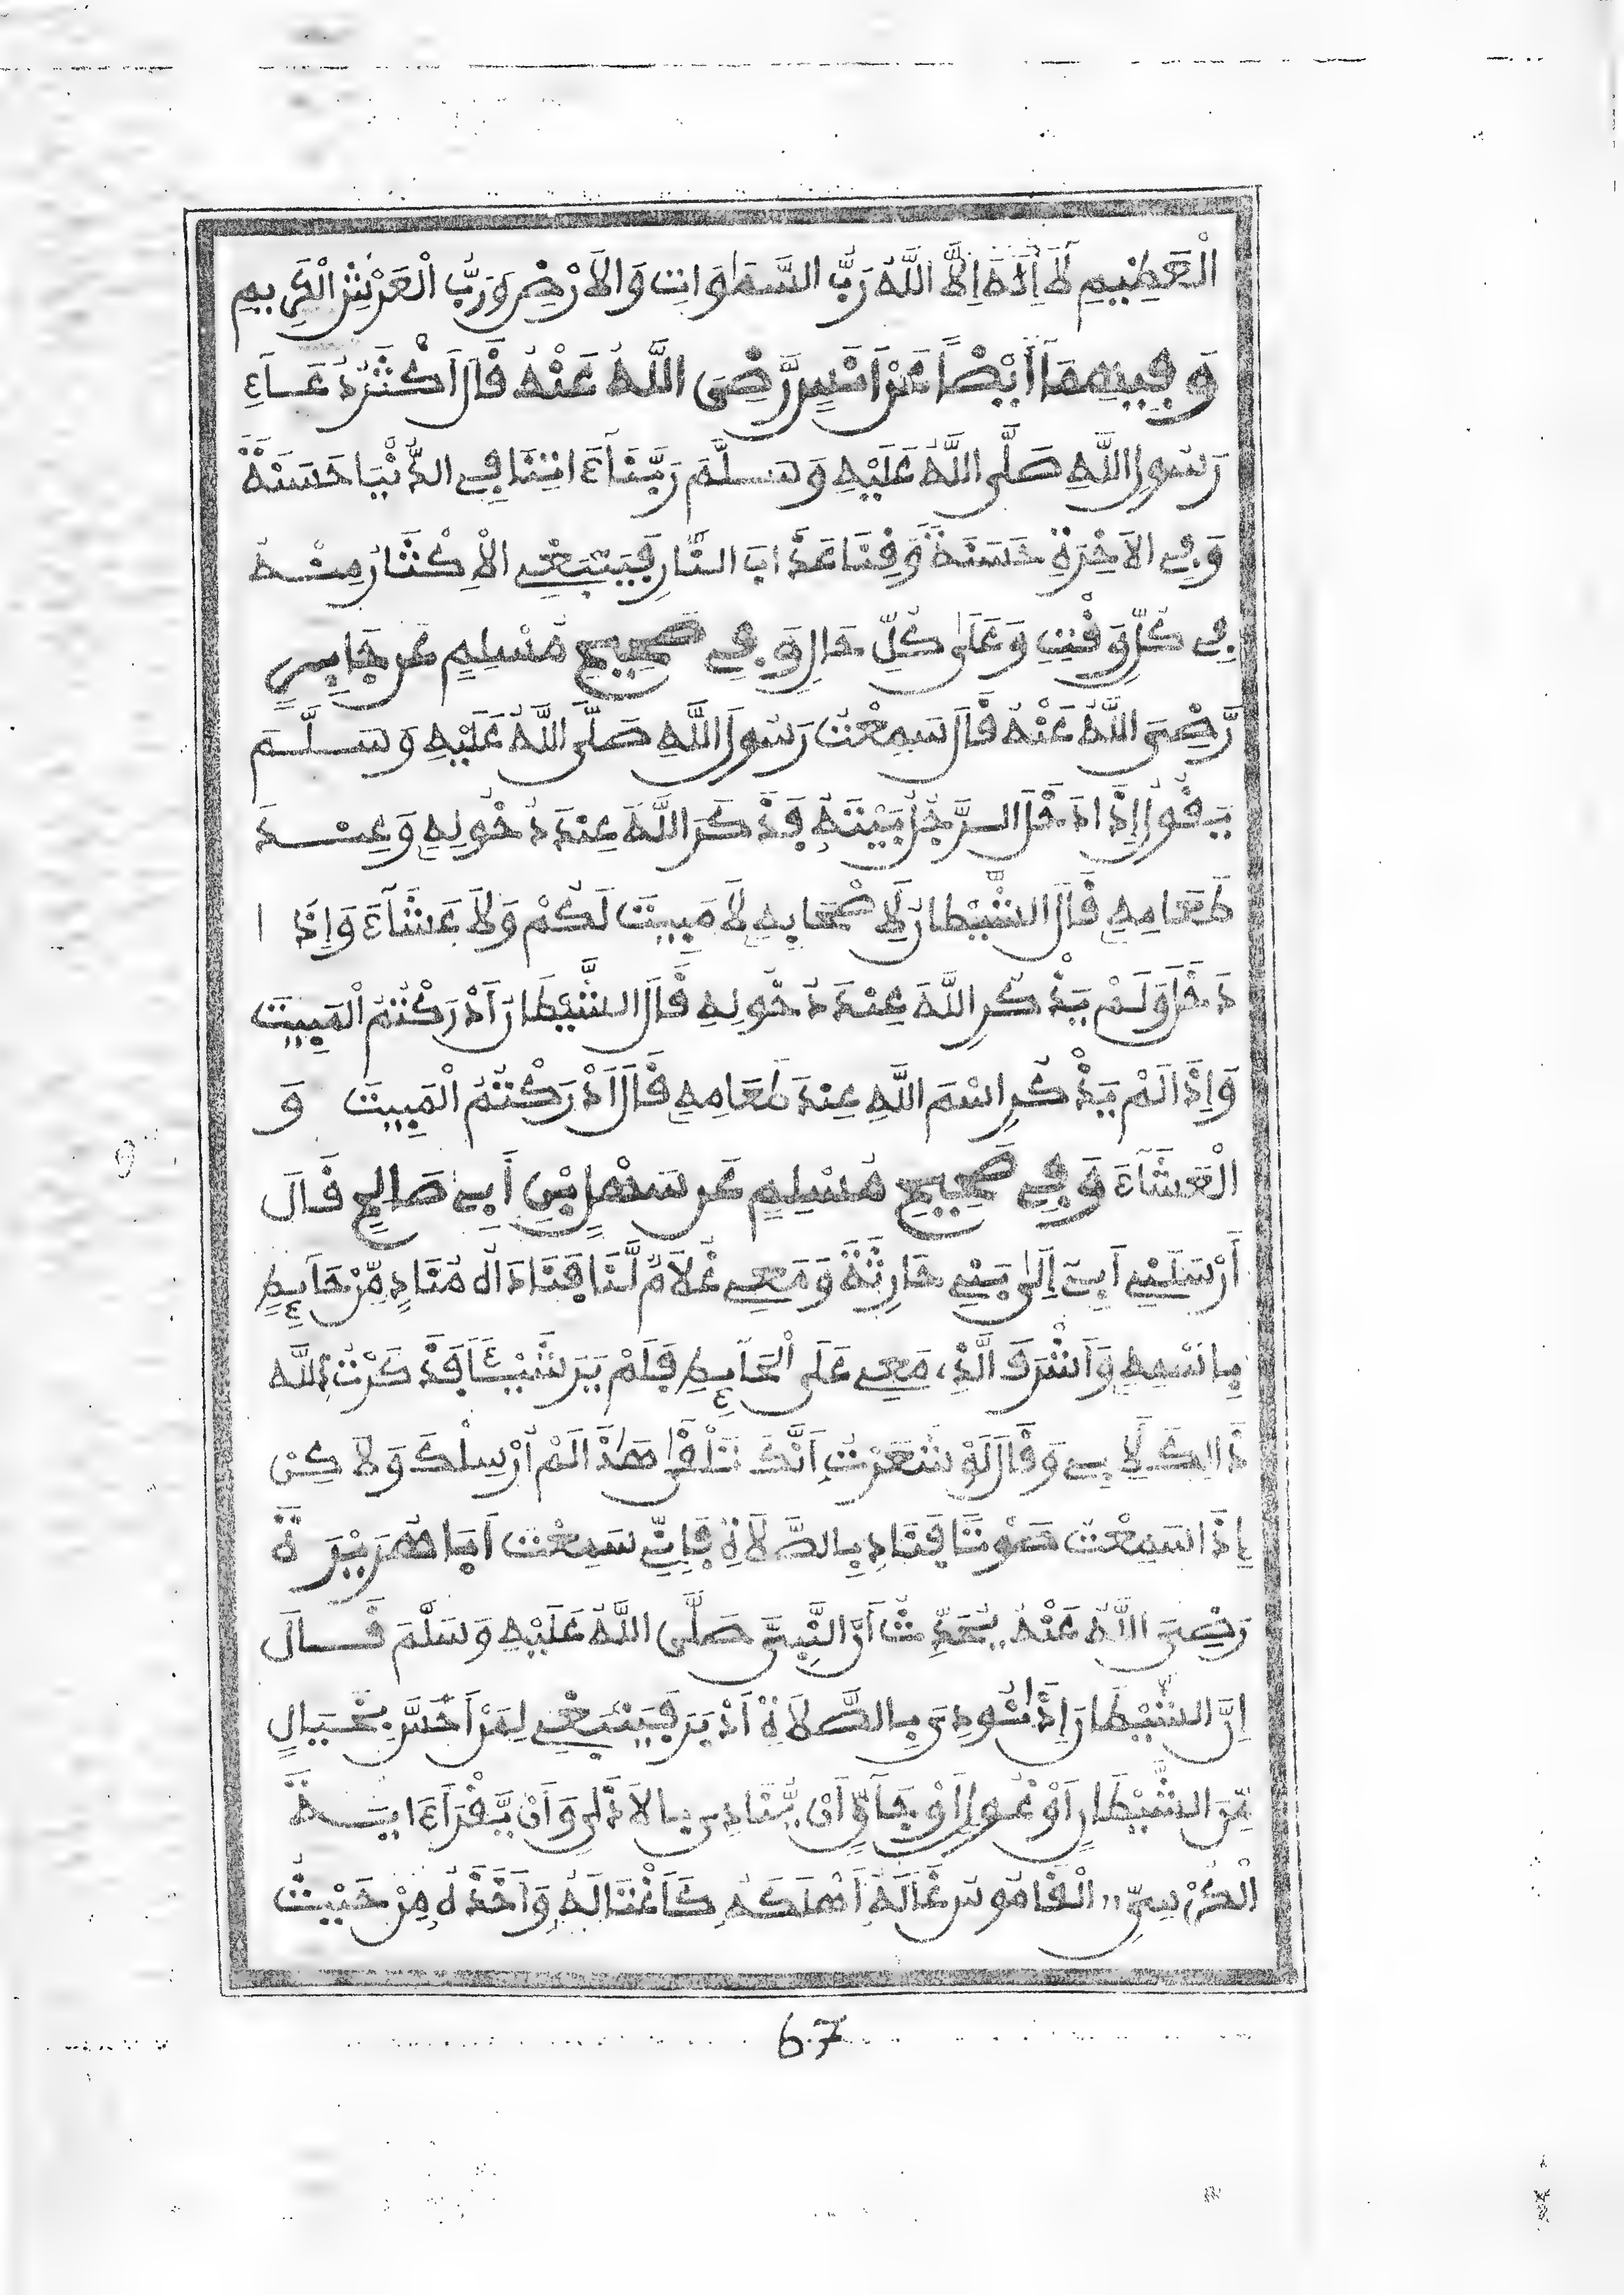 الْعَظِيمِ لَا إِلَهَ إِلَّا اللَّهُ رَبُّ السَّمَاوَاتِ وَالاَرْضِ وَرَبُّ الْعَرْشِ الْكَرِيمِ
وَفِيهِمَا أَيْضاً عَنْ اَنَسٍ رَّضِىَ اللَّهُ عَنْهُ قَالَ اَكْثَرُ دُعَاءِ
رَسُولِ اللَّهِ صَلَّى اللَّهُ عَلَيْهِ وَسَلَّمَ رَبَّنَا ءَاتِنَا فِى الدُّنْيَا حَسَنَةً
وَفِى الاَخِرَةِ حَسَنَةً وَقِنَا عَذَابَ النَّارِ فَيَنْبَغِى الاِكْثَارُ مِنْهُ
فِى كُلِّ وَقْتٍ وَعَلَى كُلِّ حَالٍ وَفِى صَحِيحِ مُسْلِمٍ عَن جَابِرٍ
رَّضِىَ اللَّهُ عَنْهُ قَالَ سَمِعْتُ رَسُولَ اللَّهِ صَلَّى اللَّهُ عَلَيْهِ وَسَلَّمَ
يَقُولُ إِذَا دَخَلَ الرَّجُلُ بَيْتَهُ فَذَكَرَ اللَّهَ عِنْدَ دُخُولِهِ وَعِنْدَ
طَعَامِهِ قَالَ الشَّيْطَانُ لِاَصْحَابِهِ لَا مَبِيتَ لَكُمْ وَلَا عَشَاءَ وَإِذَا
دَخَلَ وَلَمْ يَذْكُرِ اللَّهَ عِنْدَ دُخُولِهِ قَالَ الشَّيْطَانُ اَدْرَكْتُمُ الْمَبِيتَ
وَإِذَا لَمْ يَذْكُرِ اسْمَ اللَّهِ عِنْدَ طَعَامِهِ قَالَ اَدْرَكْتُمُ الْمَبِيتَ وَ
الْعَشَاءَ وَفِى صَحِيحِ مُسْلِمٍ عَن سَهْلِ بْنِ أَبِى صَالِحٍ قَالَ
أَرْسَلَنِى اَبِى إِلَى بَنِى حَارِثَةَ وَمَعِى غُلَامٌ لَّنَا فَنَادَاهُ مُنَادٍ مِّنْ حَائِطٍ
بِاسْمِهِ وَاَشْرَفَ الَّذِى مَعِى عَلَى الْحَائِطِ فَلَمْ يَرَ شَيْئاً فَذَكَرْتُ اللَّه
ذَالِكَ لِاَبِى وَقَالَ لَوْ شَعَرْتُ اَنَّكَ تَلْقَى هَذَا لَمْ اُرْسِلْكَ وَلَاكِنْ
إِذَا سَمِعْتَ صَوْتًا فَنَادِ بِالصَّلَاةِ فَإِنِّى سَمِعْتُ اَبَا هُرَيْرَةَ
رَضِىَ اللَّهُ عَنْهُ يُحَدِّثُ اَنَّ النَّبِىَّ صَلَّى اللَّهُ عَلَيْهِ وَسَلَّمَ قَالَ
إِنَّ الشَّيْطَانَ إِذَا نُودِىَ بِالصَّلَاةِ اَدْبَرَ فَيَنْبَغِى لِمَنْ اَحَسَّ بِخَيَالٍ
مِّنَ الشَّيْطَانِ اَوْ غُولٍ اَوْ جَانٍّ اَنْ يُّنَادِىَ بِالاَذَانِ وَاَنْ يَّقْرَأَ ءَايَةَ
الْكُرْسِىِّ ،، الْقَامُوس غَالَهُ اَهْلَكَهُ كَاغْتَالَهُ وَاَخَذَهُ مِنْ حَيْثُ
67